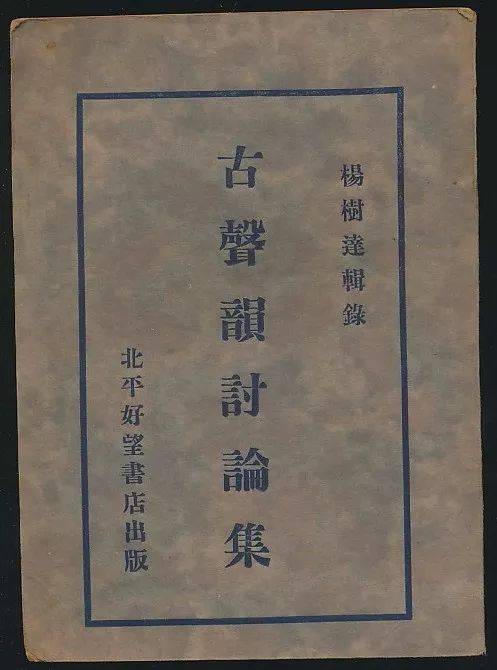 楊樹達輯錄
古聲韻討論集
北平好望書店出版